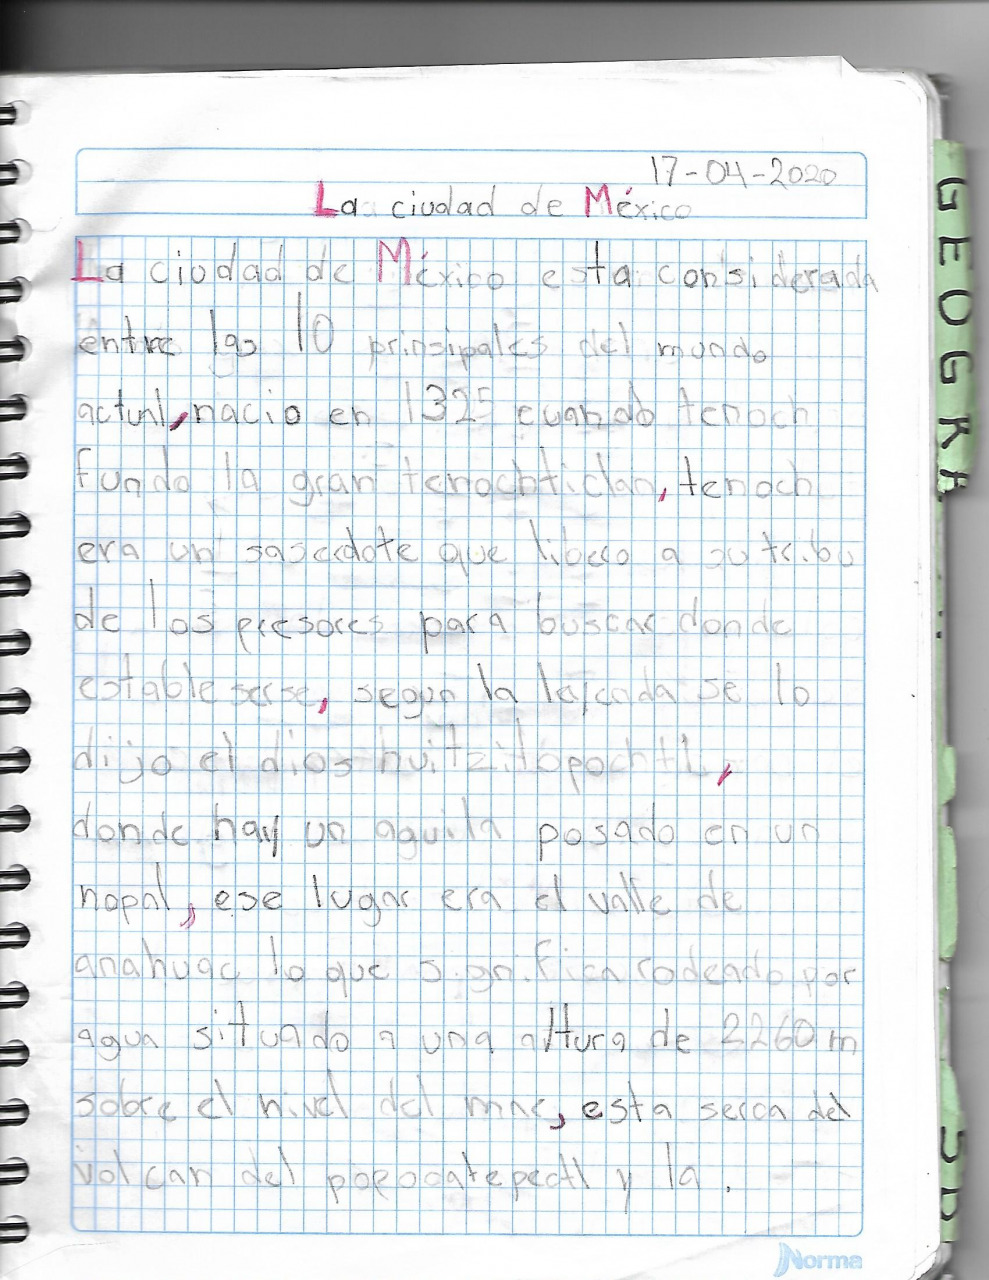 17-04-2020
La ciudad de México
La ciudad de México esta considerada
entre las 10 prinsipales del mundo
actual, nacio en 1325 cuando tenoch
fundo la gran tenochticlan, tenoch
era un saserdote que libero a su tribu
de los presores para buscar donde
estableserse, segun la lejenda se lo
dijo el dios huitzitopochtl,
donde hay un aguila posado en un
nopal, ese lugar era el valle de
anahuac lo que significa rodeado por
agua situado a una altura de 2260 m
sobre el nivel del mar, esta serca del
volcan del popocatepectl y la .
GEOGRA
Norma